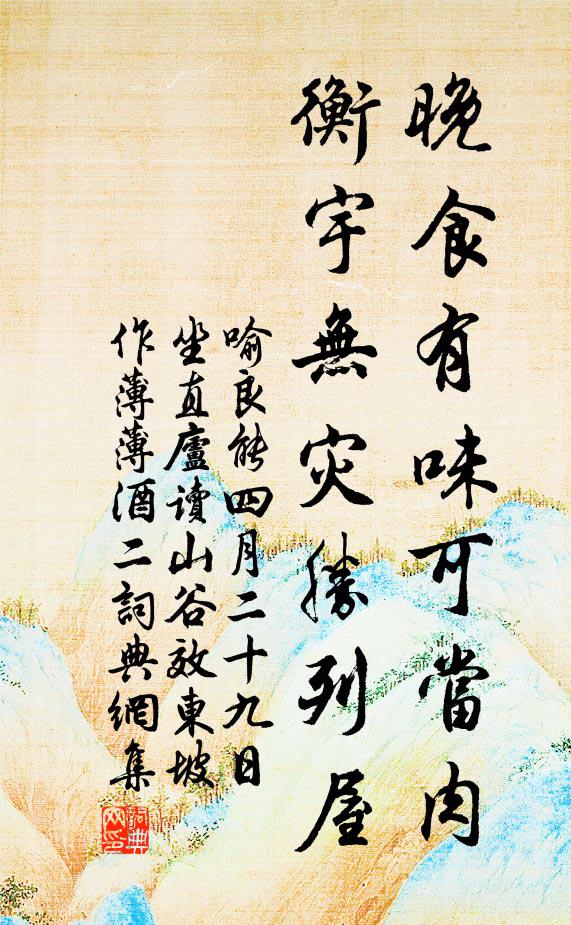 晚食有味可當肉
衡宇無災勝列屋
喻良能四月二十九日
坐直廬讀山谷效東坡
作薄薄酒二詞典網集
詞典网印